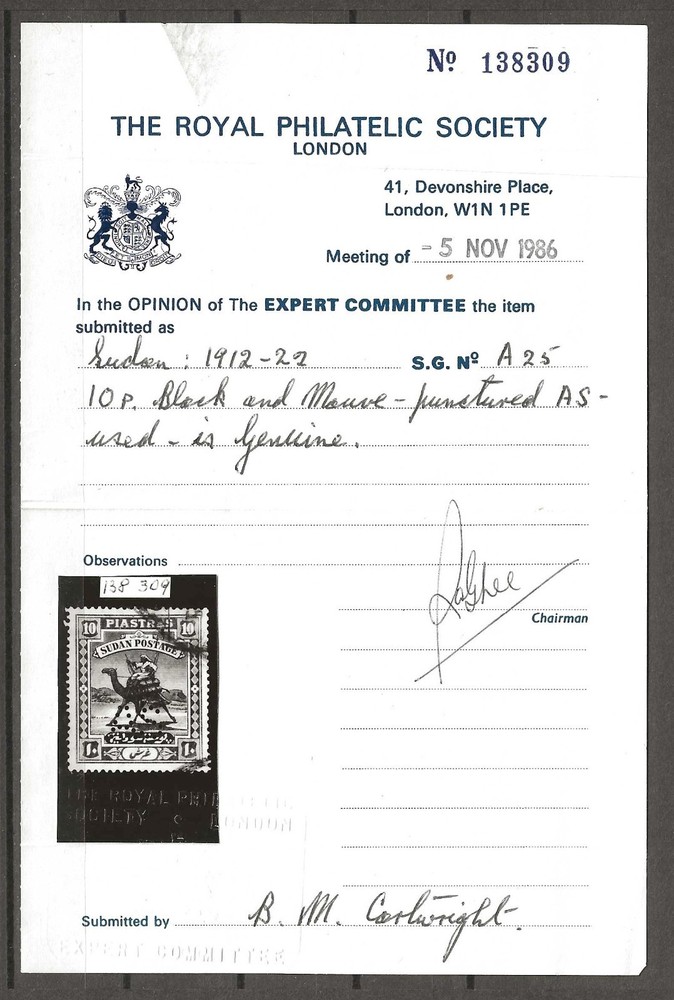 Nº 138309
THE ROYAL PHILATELIC SOCIETY
LONDON
41, Devonshire Place,
London, W1N 1PE
Meeting of - 5 NOV 1986
In the OPINION of The EXPERT COMMITTEE the item
submitted as
Sudan : 1912-22 S.G. Nº A 25
10 P. Black and Mauve - punctured AS -
used - is Genuine.
Observations
138 309
Chairman
10 PIASTRES 10
SUDAN POSTAGE
THE ROYAL PHILATELIC
SOCIETY LONDON
Submitted by B. M. Cartwright.
EXPERT COMMITTEE